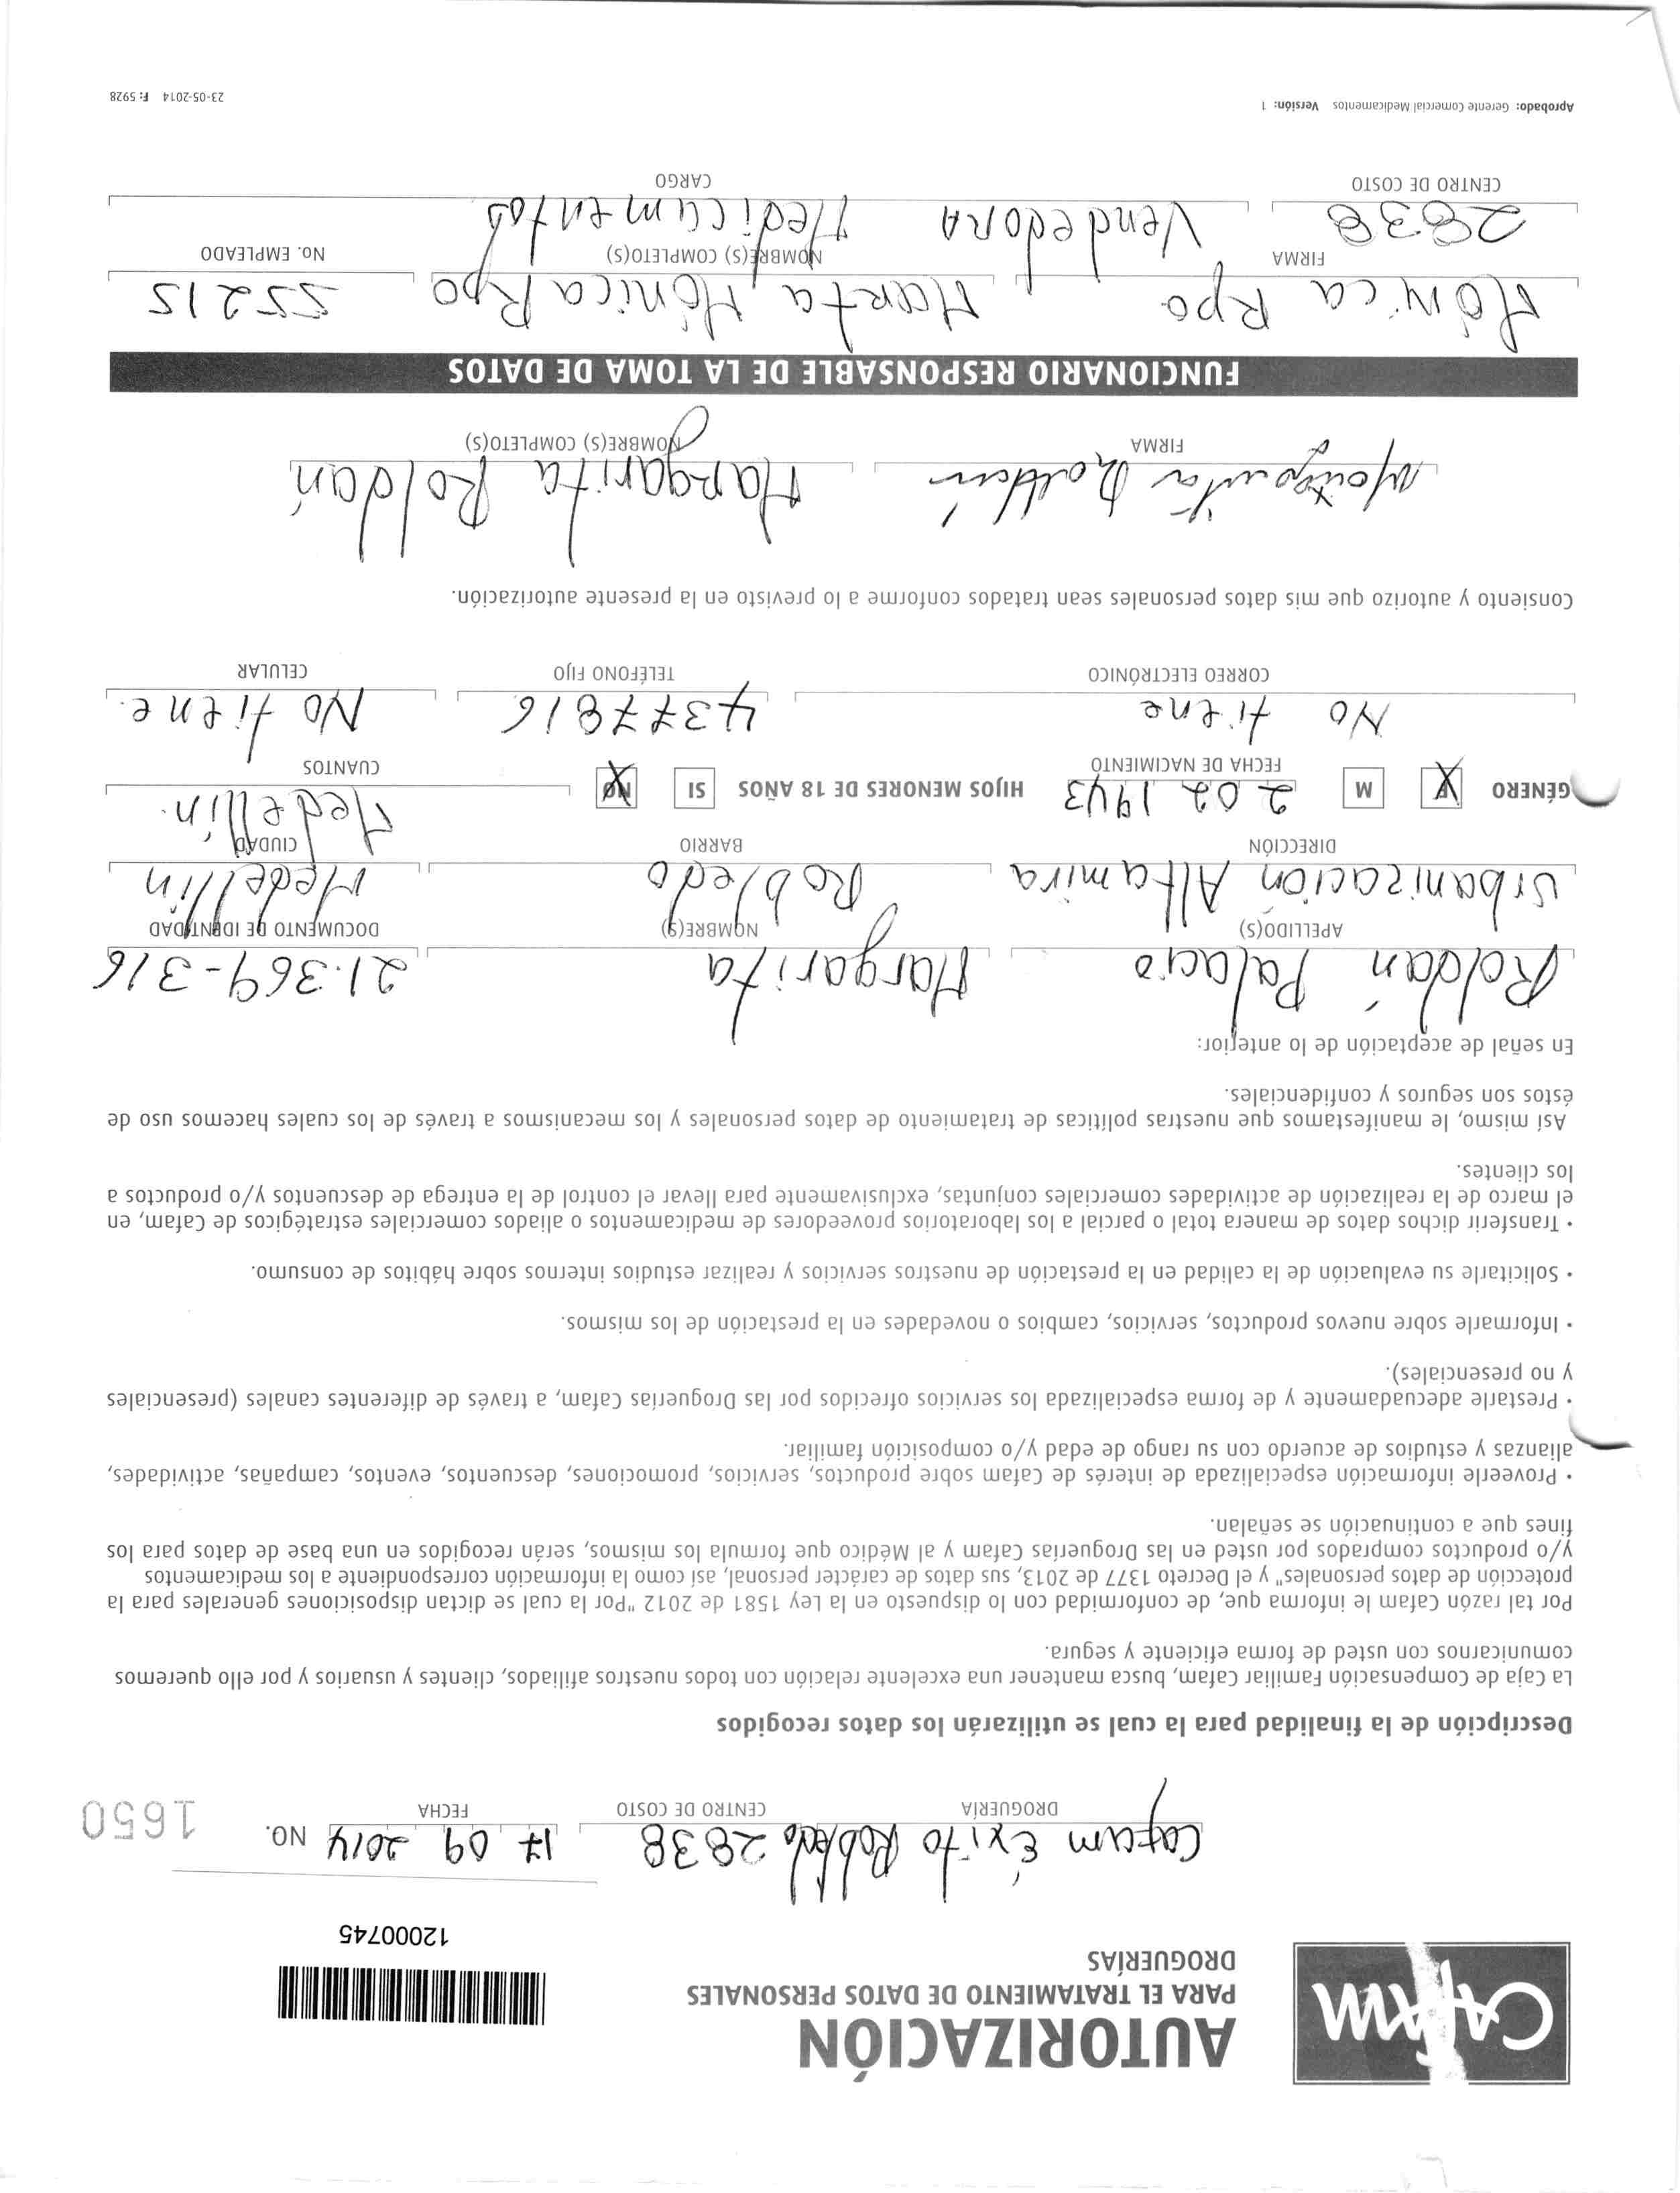 CAFAM
AUTORIZACIÓN
PARA EL TRATAMIENTO DE DATOS PERSONALES
DROGUERÍAS
12000745
Cafam Éxito Robledo 2838 17 09 2014 NO. 1650
DROGUERÍA CENTRO DE COSTO FECHA
Descripción de la finalidad para la cual se utilizarán los datos recogidos
La Caja de Compensación Familiar Cafam, busca mantener una excelente relación con todos nuestros afiliados, clientes y usuarios y por ello queremos
comunicarnos con usted de forma eficiente y segura.
Por tal razón Cafam le informa que, de conformidad con lo dispuesto en la Ley 1581 de 2012 "Por la cual se dictan disposiciones generales para la
protección de datos personales" y el Decreto 1377 de 2013, sus datos de carácter personal, así como la información correspondiente a los medicamentos
y/o productos comprados por usted en las Droguerías Cafam y al Médico que formula los mismos, serán recogidos en una base de datos para los
fines que a continuación se señalan.
• Proveerle información especializada de interés de Cafam sobre productos, servicios, promociones, descuentos, eventos, campañas, actividades,
alianzas y estudios de acuerdo con su rango de edad y/o composición familiar.
• Prestarle adecuadamente y de forma especializada los servicios ofrecidos por las Droguerías Cafam, a través de diferentes canales (presenciales
y no presenciales).
• Informarle sobre nuevos productos, servicios, cambios o novedades en la prestación de los mismos.
• Solicitarle su evaluación de la calidad en la prestación de nuestros servicios y realizar estudios internos sobre hábitos de consumo.
• Transferir dichos datos de manera total o parcial a los laboratorios proveedores de medicamentos o aliados comerciales estratégicos de Cafam, en
el marco de la realización de actividades comerciales conjuntas, exclusivamente para llevar el control de la entrega de descuentos y/o productos a
los clientes.
Así mismo, le manifestamos que nuestras políticas de tratamiento de datos personales y los mecanismos a través de los cuales hacemos uso de
éstos son seguros y confidenciales.
En señal de aceptación de lo anterior:
Roldán Palacio Margarita 21.369-316
APELLIDO(S) NOMBRE(S) DOCUMENTO DE IDENTIDAD
Urbanización Altamira Robledo Medellín
DIRECCIÓN BARRIO CIUDAD
GÉNERO F M 2 02 1943 HIJOS MENORES DE 18 AÑOS SI NO Medellín.
FECHA DE NACIMIENTO CUANTOS
No tiene 4377816 No tiene.
CORREO ELECTRÓNICO TELÉFONO FIJO CELULAR
Consiento y autorizo que mis datos personales sean tratados conforme a lo previsto en la presente autorización.
Margarita Roldán Margarita Roldán
FIRMA NOMBRE(S) COMPLETO(S)
FUNCIONARIO RESPONSABLE DE LA TOMA DE DATOS
Mónica Rpo Marta Mónica Rpo 55215
FIRMA NOMBRE(S) COMPLETO(S) No. EMPLEADO
2838 Vendedora Medicamentos
CENTRO DE COSTO CARGO
Aprobado: Gerente Comercial Medicamentos Versión: 1 23-05-2014 F: 5928